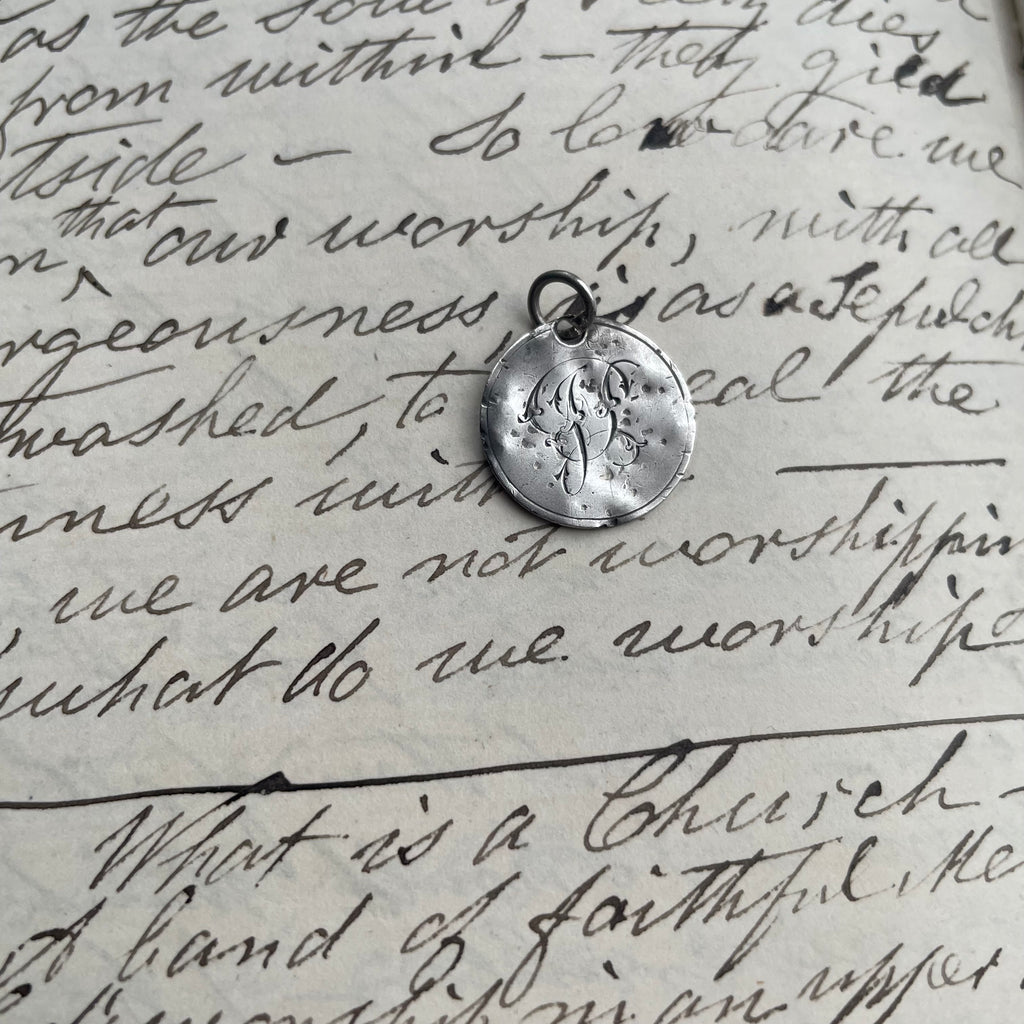 as the soul
dies
from within — they gild
tside — So
dare we
that
our worship, with all
rgeousness, is as a Sepulch
washed, to
eal the
ness with
we are not worshippin
what do we worship
What is a Church —
A band of faithful Me
worship in an upper